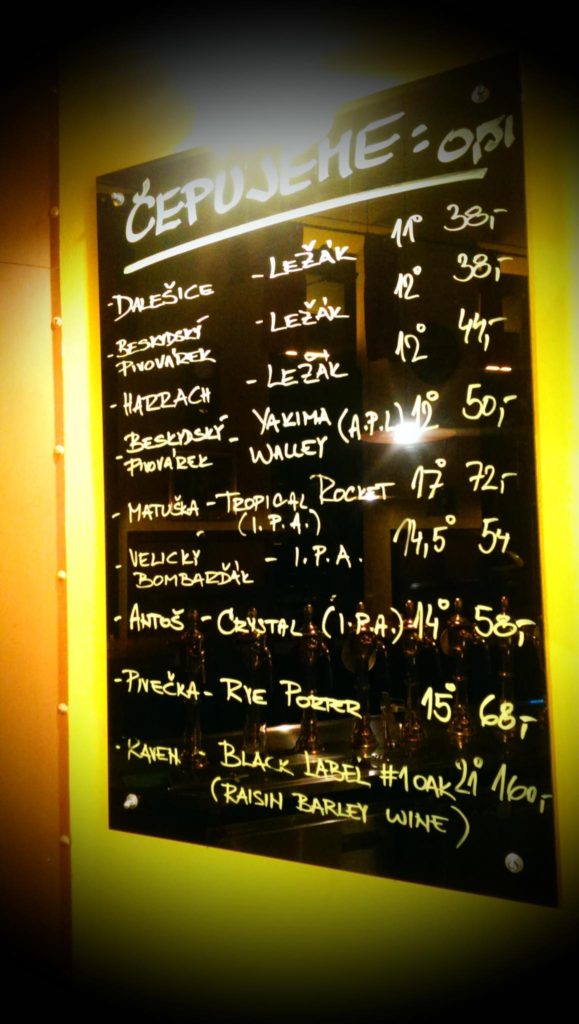 ČEPUJEME: 0,5l
- DALEŠICE - LEŽÁK 11° 38,-
- BESKYDSKÝ PIVOVÁREK - LEŽÁK 12° 38,-
- HARRACH - LEŽÁK 12° 44,-
- BESKYDSKÝ PIVOVÁREK - YAKIMA WALLEY (A.P.L) 12° 50,-
- MATUŠKA - TROPICAL ROCKET (I.P.A.) 17° 72,-
- VELICKÝ BOMBARĎÁK - I.P.A. 14,5° 54
- ANTOŠ - CRYSTAL (I.P.A.) 14° 58,-
- PIVEČKA - RYE PORTER 15° 68,-
- RAVEN - BLACK LABEL #1 OAK 21° 160,-
(RAISIN BARLEY WINE)